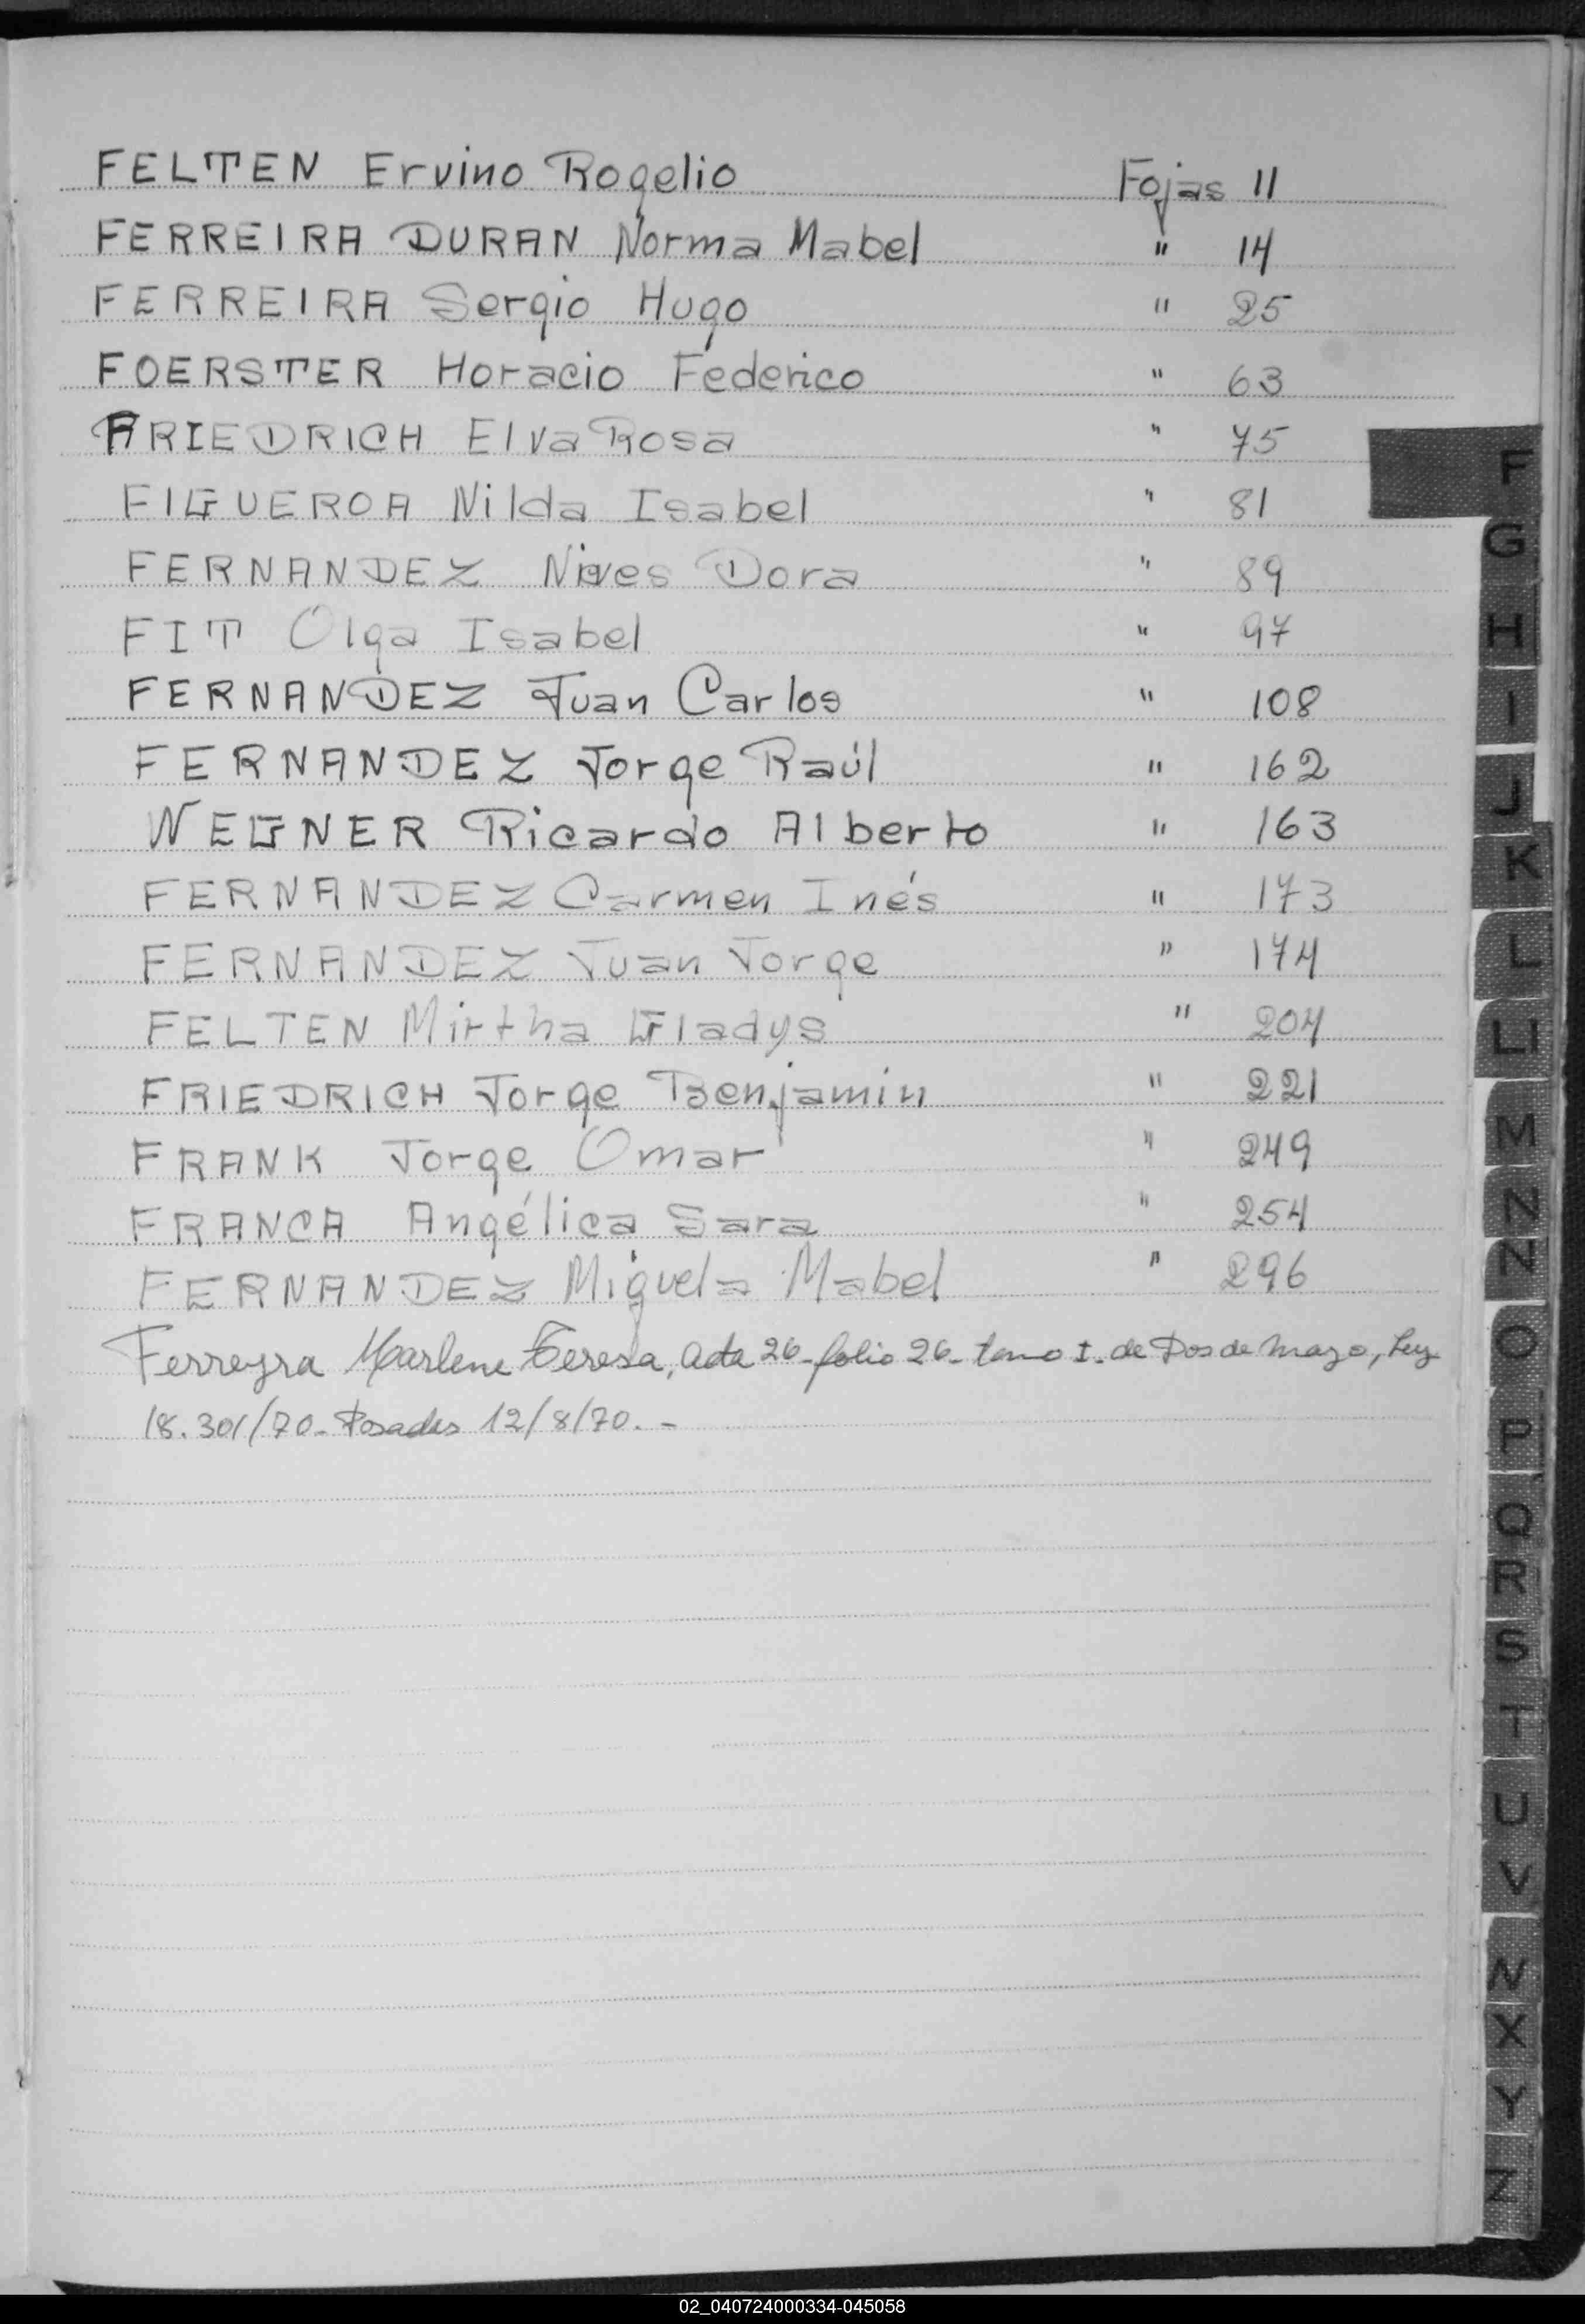 FELTEN Ervino Rogelio Fojas 11
FERREIRA DURAN Norma Mabel " 14
FERREIRA Sergio Hugo " 25
FOERSTER Horacio Federico " 63
FRIEDRICH Elva Rosa " 75
FIGUEROA Nilda Isabel " 81
FERNANDEZ Nieves Dora " 89
FIT Olga Isabel " 97
FERNANDEZ Juan Carlos " 108
FERNANDEZ Jorge Raúl " 162
WEGNER Ricardo Alberto " 163
FERNANDEZ Carmen Inés " 173
FERNANDEZ Juan Jorge " 174
FELTEN Mirtha Gladys " 204
FRIEDRICH Jorge Benjamin " 221
FRANK Jorge Omar " 249
FRANCA Angélica Sara " 254
FERNANDEZ Miguela Mabel " 296
Ferreyra Marlene Teresa, acta 26- folio 26- tomo I. de Dos de Mayo, Ley
18.301/70- Posadas 12/8/70.-
F
G
H
I
J
K
L
Ll
M
N
Ñ
O
P
Q
R
S
T
U
V
W
X
Y
Z
02_040724000334-045058